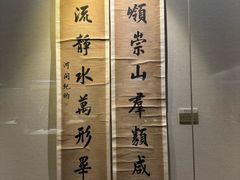 領崇山羣類咸
流靜水萬形畢
河間紀昀